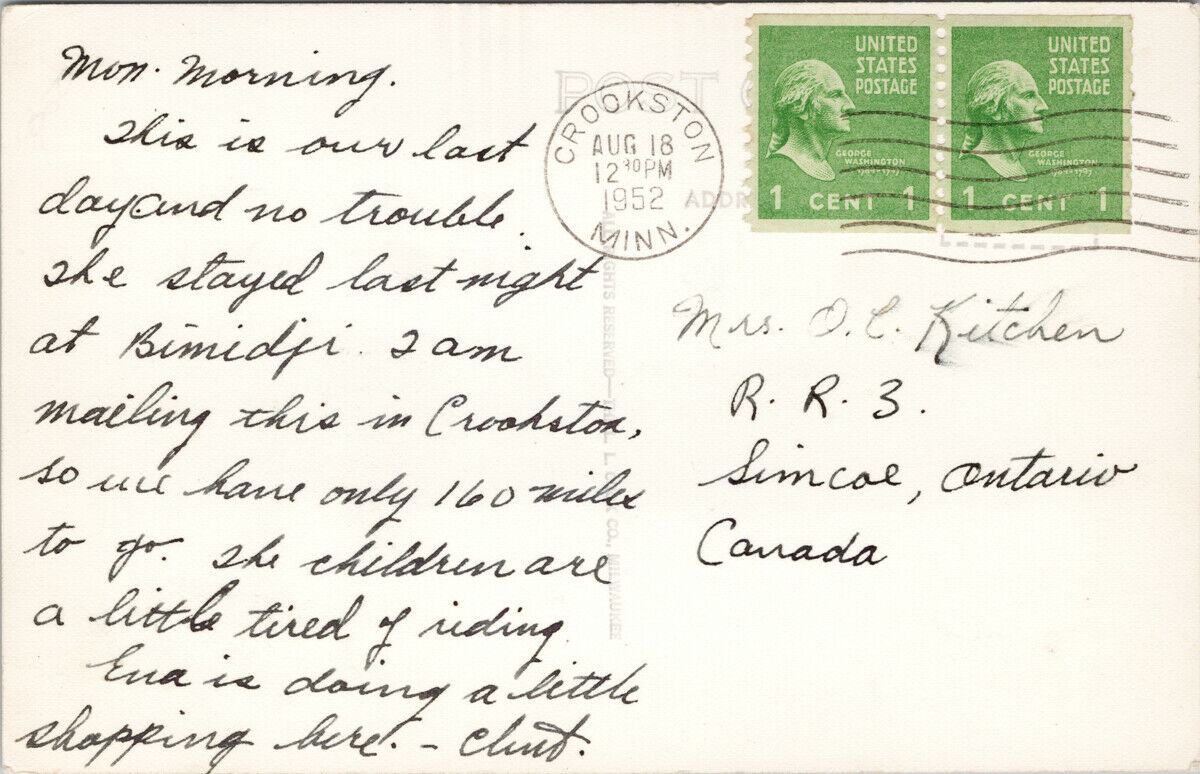 Mon. Morning.
This is our last
day and no trouble.
She stayed last night
at Bimidji. I am
mailing this in Crookston,
so we have only 160 miles
to go. The children are
a little tired of riding
Ena is doing a little
shopping here. - Clint.
POST C
ADDR
CROOKSTON
AUG 18
12 30 PM
1952
MINN.
UNITED
STATES
POSTAGE
GEORGE
WASHINGTON
1789-1797
1 CENT 1
UNITED
STATES
POSTAGE
GEORGE
WASHINGTON
1789-1797
1 CENT 1
Mrs. O. C. Kitchen
R. R. 3.
Simcoe, Ontario
Canada
GHTS RESERVED— L. CO., MILWAUKEE